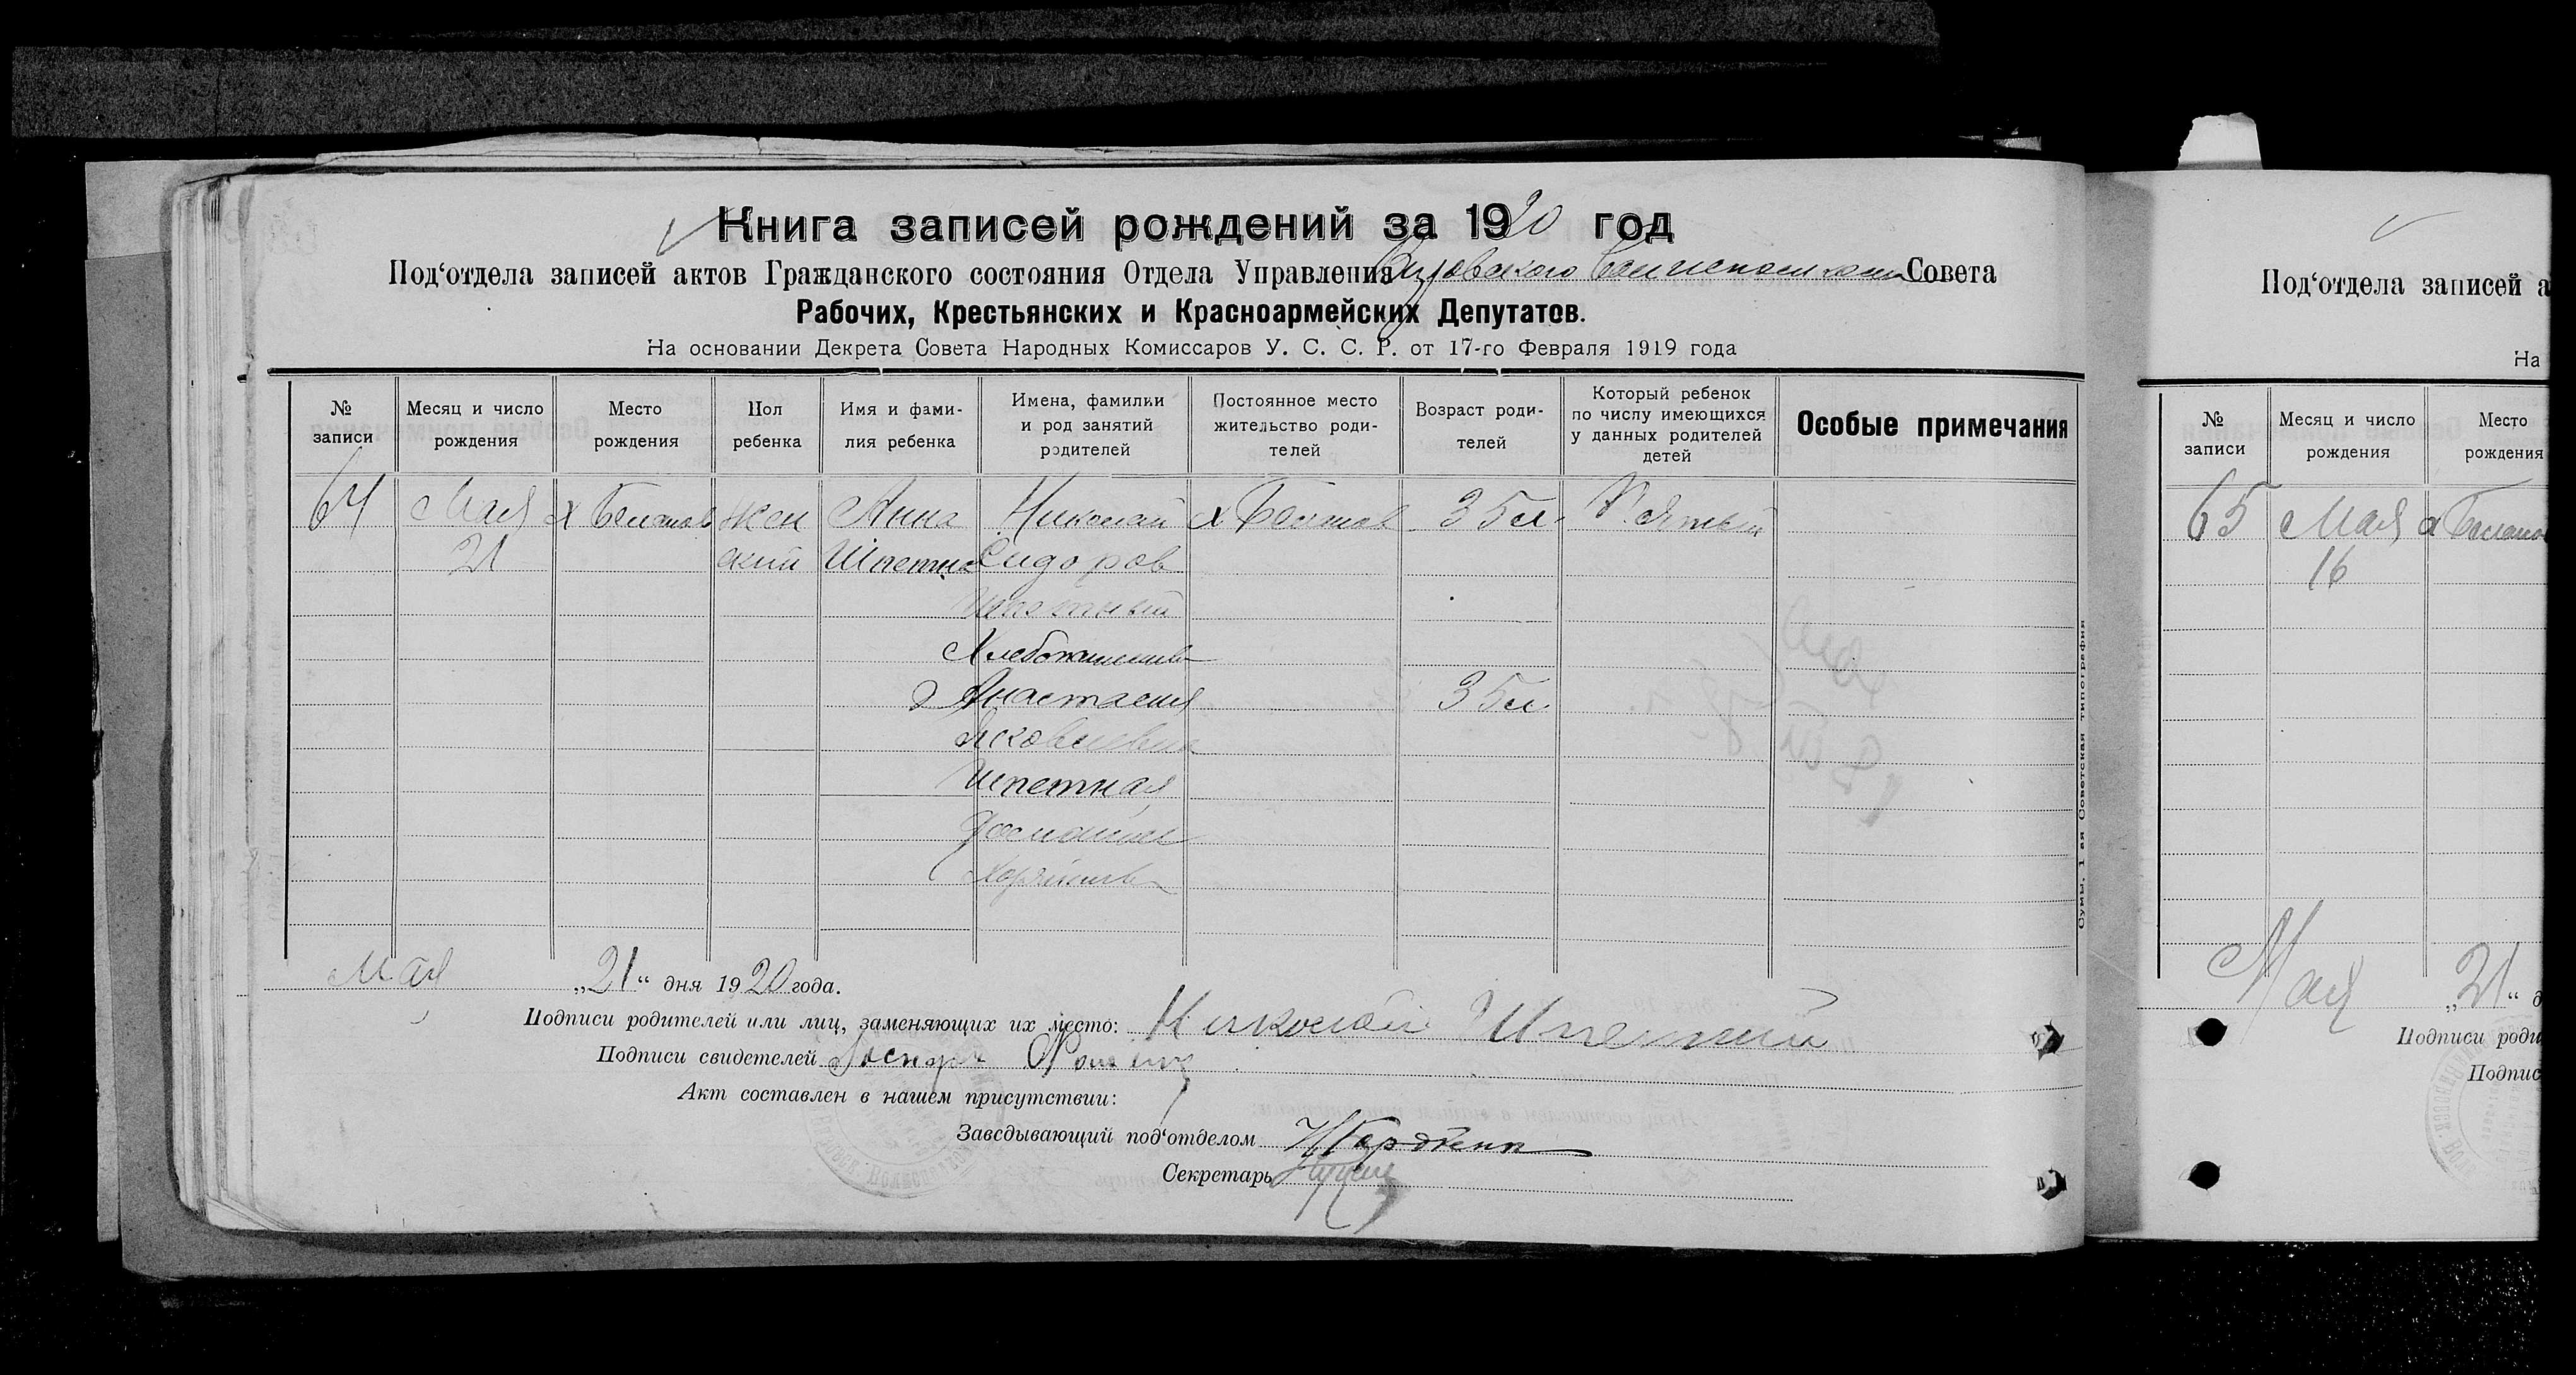 Книга записей рождений за 1920 год
Под‘отдела записей актов Гражданского состояния Отдела Управления Совета
Рабочих, Крестьянских и Красноармейских Депутатов.
На основании Декрета Совета Народных Комиссаров У. С. С. Р. от 17-го Февраля 1919 года
№ записи
Месяц и число рождения
Место рождения
Пол ребенка
Имя и фами-
лия ребенка
Имена, фамилии
и род занятий
родителей
Постоянное место
жительство роди-
телей
Возраст роди-
телей
Который ребенок
по числу имеющихся
у данных родителей
детей
Особые примечания
64 Мая х Жен Анна Николай х 35 л. Пятый
21 ский Шпетна Сидоров
Шпетный
Хлебопашец
Анастасия 35 л
Яковлевна
Шпетная
Мая „21“ дня 1920 года.
Подписи родителей или лиц, заменяющих их место: Николай Шпетний
Подписи свидетелей
Акт составлен в нашем присутствии:
Заведывающий под‘отделом
Секретарь
Сумы, 1-ая Советская типография
Под‘отдела записей а
На
№ записи
Месяц и число рождения
Место рождения
65 Мая
16
Мая „21“ д
Подписи роди
Подпис